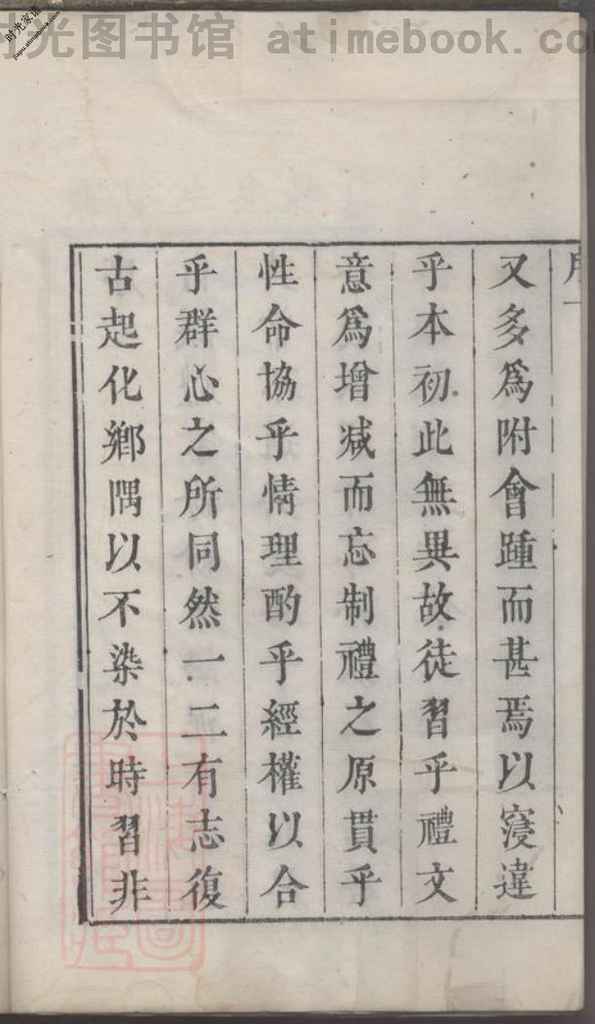 时光图书馆 atimebook.co
时光家谱
又多爲附會踵而甚焉以寖違
乎本初此無異故徒習乎禮文
意爲增减而忘制禮之原貫乎
性命協乎情理酌乎經權以合
乎群心之所同然一二有志復
古起化鄉隅以不染於時習非